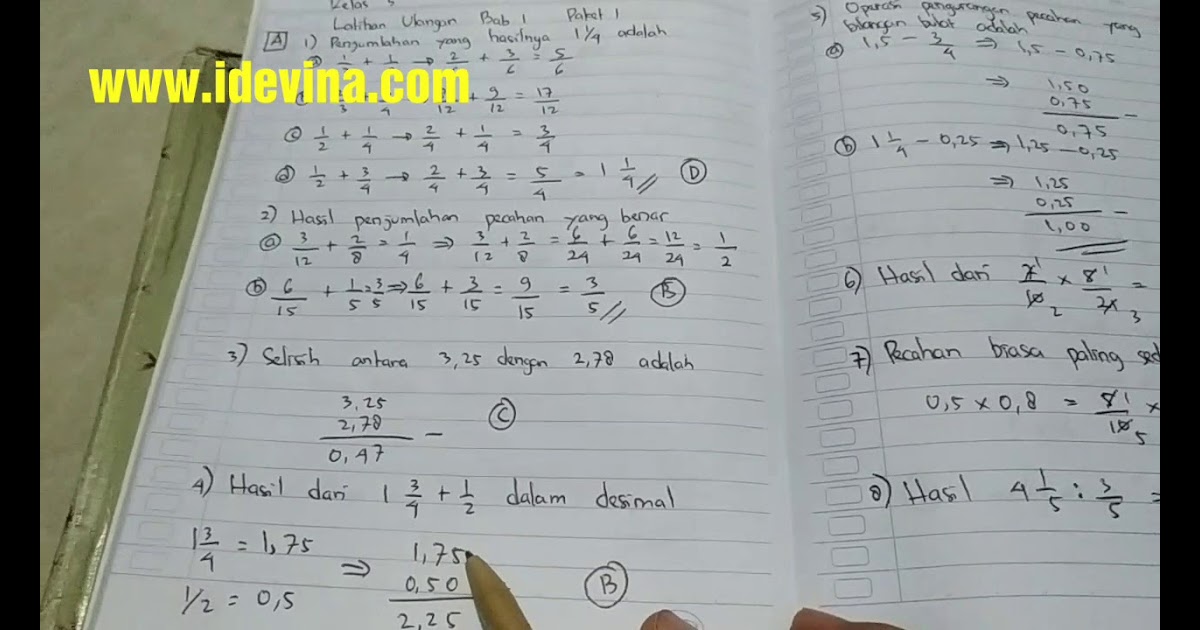 Kelas 5
Latihan Ulangan Bab 1 Paket 1
A 1) Penjumlahan yang hasilnya 1 1/4 adalah
1/2 + 1/4 → 2/6 + 3/6 = 5/6
www.idevina.com
/3 + /4 /12 + 9/12 = 17/12
c 1/2 + 1/4 → 2/4 + 1/4 = 3/4
d 1/2 + 3/4 → 2/4 + 3/4 = 5/4 = 1 1/4 // D
2) Hasil penjumlahan pecahan yang benar
a 3/12 + 2/8 = 1/4 ⇒ 3/12 + 2/8 = 6/24 + 6/24 = 12/24 = 1/2
b 6/15 + 1/5 = 3/5 ⇒ 6/15 + 3/15 = 9/15 = 3/5 // B
3) Selisih antara 3,25 dengan 2,78 adalah
3,25
2,78 − C
0,47
4) Hasil dari 1 3/4 + 1/2 dalam desimal
1 3/4 = 1,75 ⇒ 1,75
1/2 = 0,5 0,50 B
2,25
5) Operasi pengurangan pecahan yang
bilangan bulat adalah
a 1,5 − 3/4 ⇒ 1,5 − 0,75
⇒ 1,50
0,75 −
0,75
b 1 1/4 − 0,25 ⇒ 1,25 − 0,25
⇒ 1,25
0,25 −
1,00
6) Hasil dari 7 1/10 2 × 8 1/21 3 =
7) Pecahan biasa paling sed
0,5 × 0,8 = 8 1/10 5 ×
8) Hasil 4 1/5 : 3/5 =